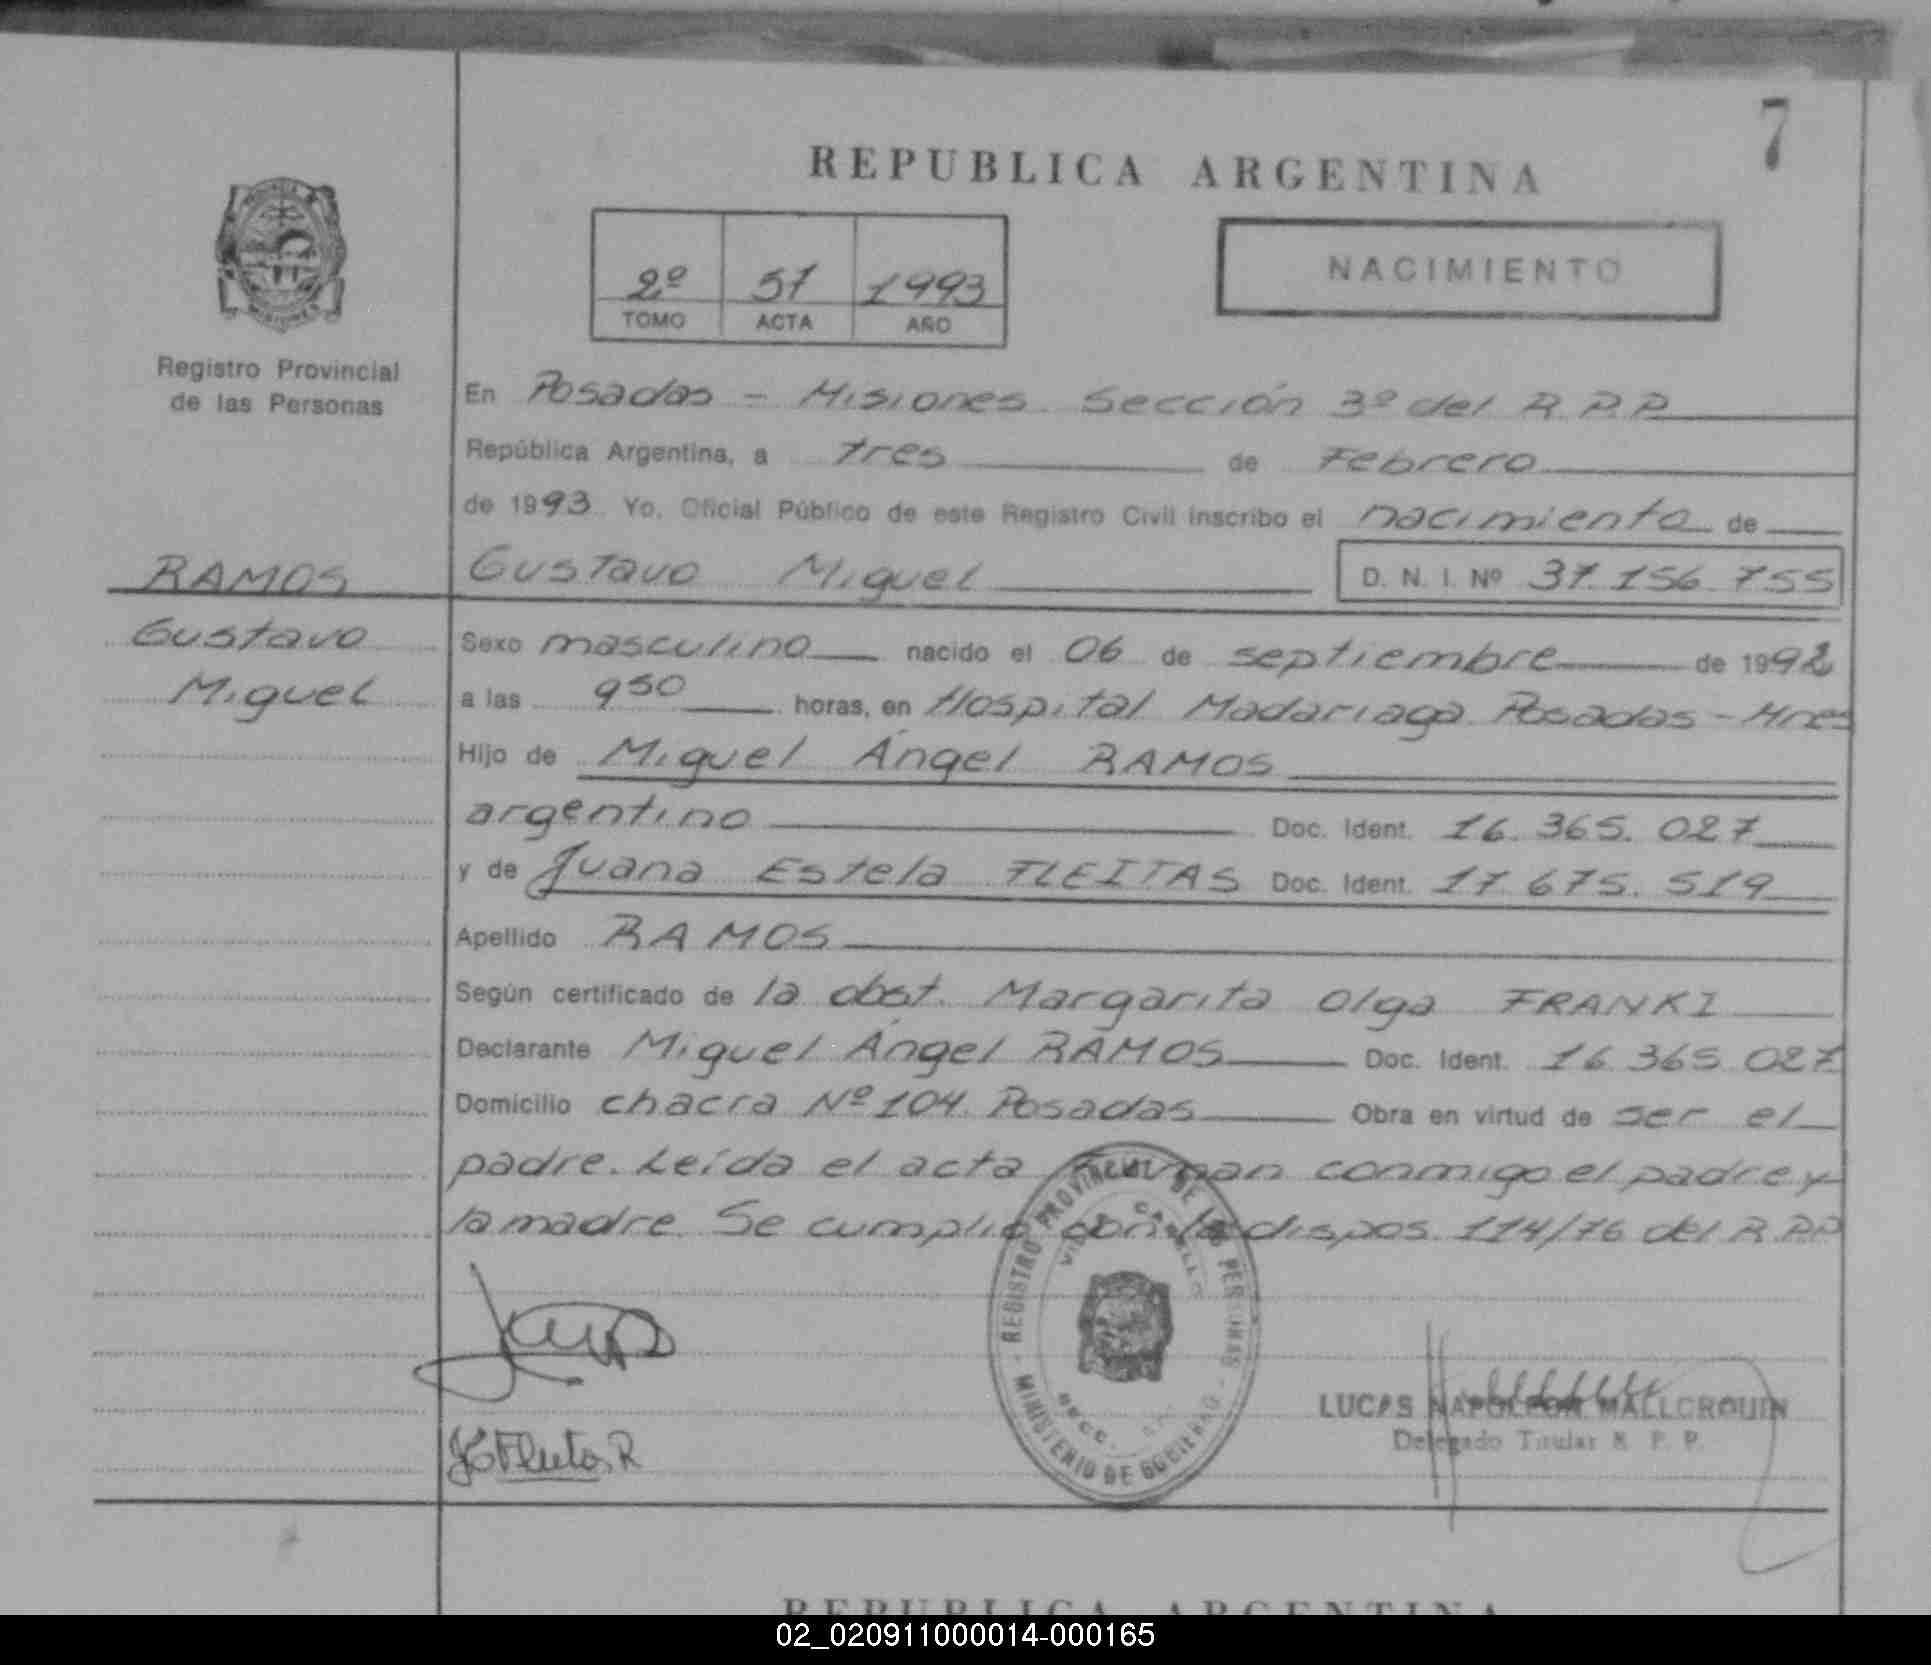 7
REPUBLICA ARGENTINA
2º 51 1993
TOMO ACTA AÑO
NACIMIENTO
Registro Provincial
de las Personas
En Posadas - Misiones Sección 3º del R.P.P
República Argentina, a tres de Febrero
de 1993 Yo, Oficial Público de este Registro Civil inscribo el nacimiento de
RAMOS Gustavo Miguel D. N. I. Nº 37.156.755
Gustavo Sexo masculino nacido el 06 de septiembre de 1992
Miguel a las 9 50 horas, en Hospital Madariaga Posadas - Mnes
Hijo de Miguel Ángel RAMOS
argentino Doc. Ident. 16.365.027
y de Juana Estela FLEITAS Doc. Ident. 17.675.519
Apellido RAMOS
Según certificado de la obst. Margarita Olga FRANKI
Declarante Miguel Ángel RAMOS Doc. Ident. 16.365.027
Domicilio chacra Nº 104 Posadas Obra en virtud de ser el
padre. Leída el acta firman conmigo el padre y
la madre. Se cumplió con la dispos. 114/76 del R.P.P
REGISTRO PROVINCIAL DE LAS PERSONAS
VILLA CABELLO
SECC.
MINISTERIO DE GOBIERNO
LUCAS NAPOLEON MALLCROUIN
Delegado Titular R. P. P.
REPUBLICA ARGENTINA
02_020911000014-000165